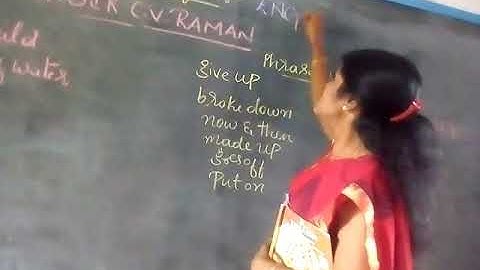 C.V. RAMAN
ENG
uld
water
Phrase
give up
broke down
now & then
made up
goes off
Put on